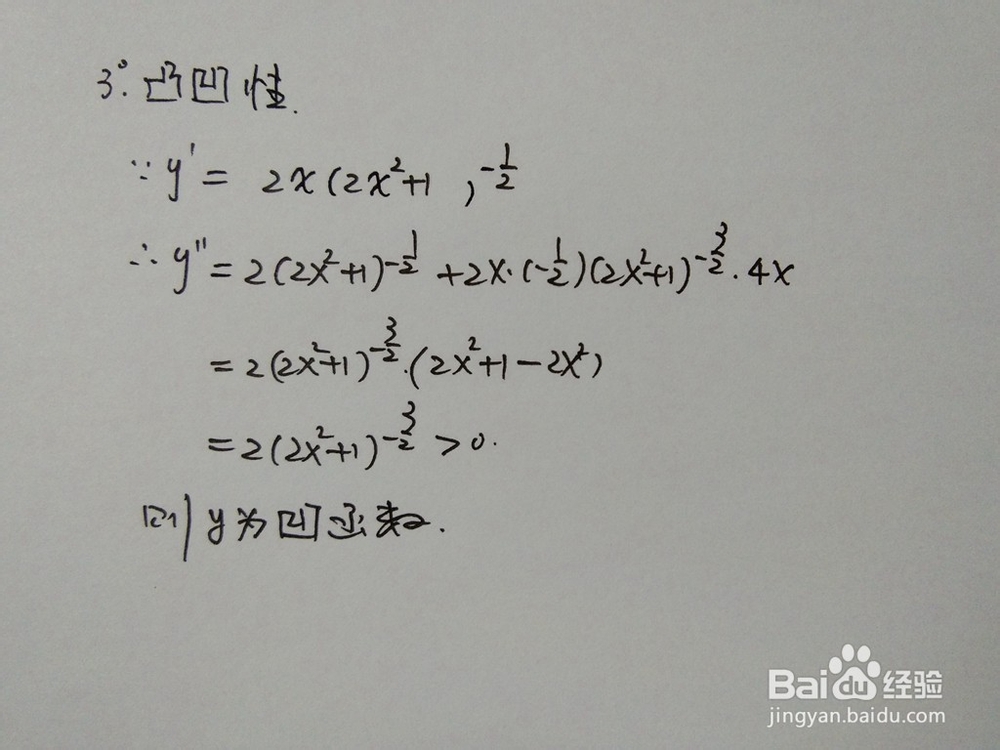 3°. 凸凹性.
∵ y' = 2x(2x²+1 )^{-1/2}
∴ y'' = 2(2x²+1)^{-1/2} + 2x·(-1/2)(2x²+1)^{-3/2}·4x
= 2(2x²+1)^{-3/2}·(2x²+1-2x²)
= 2(2x²+1)^{-3/2} > 0.
则y为凹函数.
Baidu经验
jingyan.baidu.com